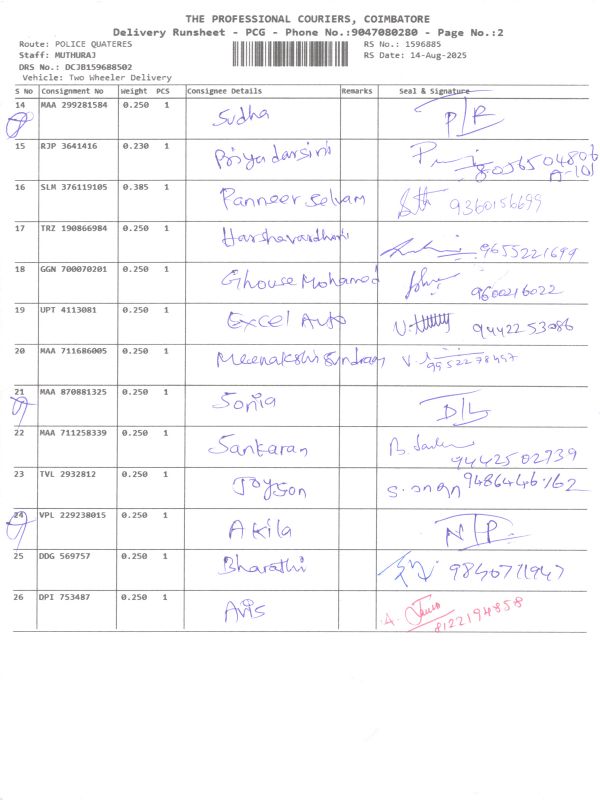 THE PROFESSIONAL COURIERS, COIMBATORE
Delivery Runsheet - PCG - Phone No.:9047080280 - Page No.:2
Route: POLICE QUATERES RS No.: 1596885
Staff: MUTHURAJ RS Date: 14-Aug-2025
DRS No.: DCJB159688502
Vehicle: Two Wheeler Delivery
S No Consignment No Weight PCS Consignee Details Remarks Seal & Signature
14 MAA 299281584 0.250 1 Sudha
15 RJP 3641416 0.230 1 Priyadarsini 8056504806
A-101
16 SLM 376119105 0.385 1 Panneer Selvam 9360156699
17 TRZ 190866984 0.250 1 Harshavardhani 9655221699
18 GGN 700070201 0.250 1 Ghouse Mohamed 9600216022
19 UPT 4113081 0.250 1 Excel Auto 9442253086
20 MAA 711686005 0.250 1 Meenakshi Sundram
21 MAA 870881325 0.250 1 Sonia D/L
22 MAA 711258339 0.250 1 Sankaran 9442502739
23 TVL 2932812 0.250 1 Joyson
24 VPL 229238015 0.250 1 Akila N/P
25 DDG 569757 0.250 1 Bharathi 9840711947
26 DPI 753487 0.250 1 Avis 8122194858